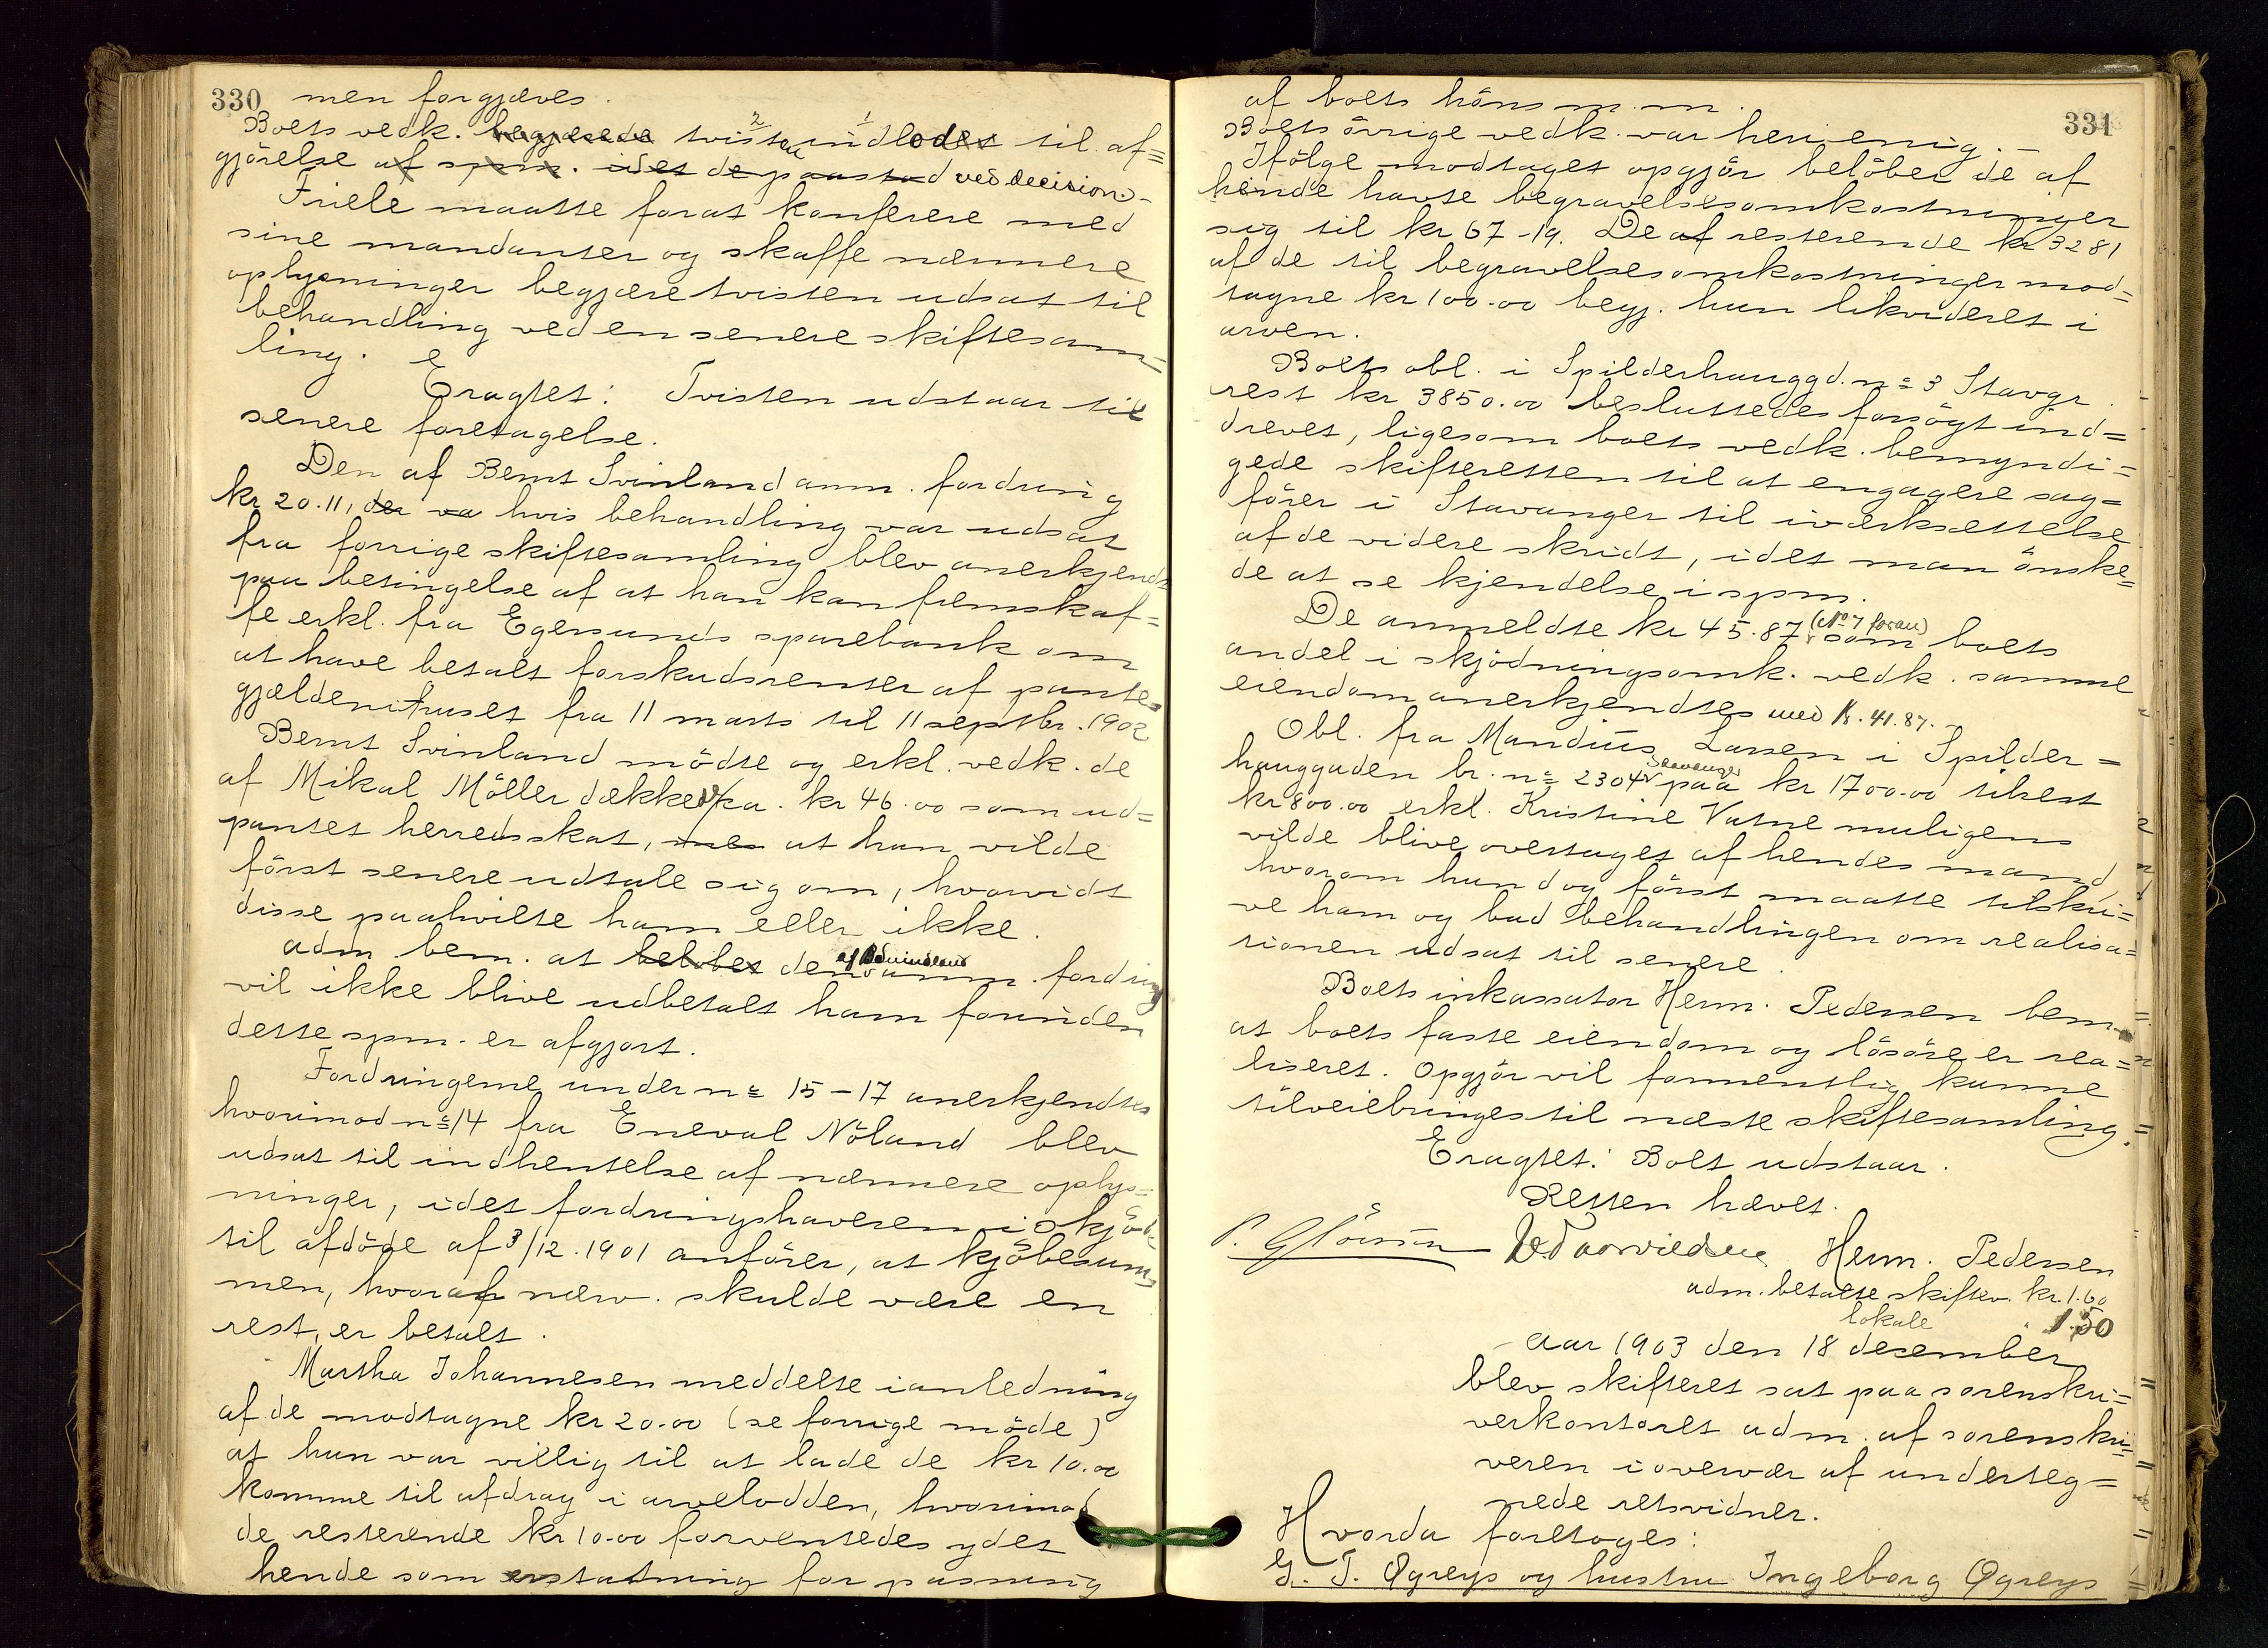 330 men forgjæves.
Boets vedk. begjærede tvisten indlodes til af=
gjörelse af spm. idet de paastod ved decision.
Friele maatte forat konferere med
sine mandanter og skaffe nærmere
oplysninger begjære tvisten udsat til
behandling ved en senere skiftesam=
ling.
Eragtet: Tvisten udstaar til
senere foretagelse.
Den af Bernt Svinland anm. fordring
kr 20.11, der va hvis behandling var udsat
fra forrige skiftesamling blev anerkjendt
paa betingelse af at han kan fremskaf=
fe erkl. fra Egersunds sparebank om
at have betalt forskudsrenter af pante=
gjælden i huset fra 11 marts til 11 septbr. 1902
Bernt Svinland mödte og erkl. vedk. de
af Mikal Möller dækkede ca. kr 46.00 som ud=
pantet herredsskat, men at han vilde
först senere udtale sig om, hvorvidt
disse paahvilte ham eller ikke.
Adm bem. at belöbet den af B Svindland anm. fordring
vil ikke blive udbetalt ham forinden
dette spm. er afgjort.
Fordringerne under no 15-17 anerkjendtes
hvorimod no 14 fra Eneval Nöland blev
udsat til indhentelse af nærmere oplys=
ninger, idet fordringshaveren i skjöde
til afdöde af 3/12.1901 anförer, at kjöbesum=
men, hvoraf nærv. skulde være en
rest, er betalt.
Martha Johannesen meddelte i anledning
af de modtagne kr 20.00 (se forrige möde)
at hun var villig til at lade de kr 10.00
komme til afdrag i arvelodden, hvorimod
de resterende kr 10.00 forventedes ydet
hende som erstatning for pasning
331
af boets höns m.m.
Boets övrige vedk. var heri enig.
Ifölge modtaget opgjör belöber de af
hende havte begravelsesomkostninger
sig til kr 67-19. De af resterende kr 32 81
af de til begravelsesomkostninger mod=
tagne kr 100.00 begj. hun likvideret i
arven.
Boets obl. i Spilderhauggd. no 3 Stavgr.
rest kr 3850.00 besluttedes forsögt ind=
drevet, ligesom boets vedk. bemyndi=
gede skifteretten til at engagere sag=
förer i Stavanger til iværksættelse
af de videre skridt, idet man önske=
de at se kjendelse i spm.
De anmeldte kr 45.87 (No 7 foran) som boets
andel i skjödningsomk. vedk. samme
eiendom anerkjendtes med Kr. 41.87.
Obl. fra Mandius Larsen i Spilder=
hauggaden br. no 2304 Stavanger paa kr 1700.00 tilrest
kr 800.00 erkl. Kristine Vatne muligens
vilde blive overtaget af hendes mand,
hvorom hun dog först maatte tilskri=
ve ham og bad behandlingen om realisa=
tionen udsat til senere.
Boets inkassator Herm. Pedersen bem.
at boets faste eiendom og lösöre er rea=
liseret. Opgjör vil formentlig kunne
tilveiebringes til næste skiftesamling.
Eragtet: Boet udstaar.
Retten hævet.
Herm. Pedersen
adm. betalte skiftev. kr. 1.60
lokale " 1.50
Aar 1903 den 18 desember
blev skifteret sat paa sorenskri=
verkontoret adm. af sorenskri=
veren i overvær af underteg=
nede retsvidner.
Hvorda foretoges:
G. T. Øgreys og hustru Ingeborg Øgreys